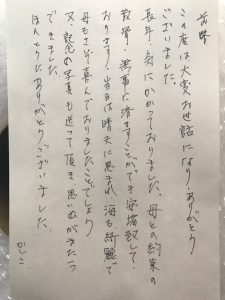 前略
この度は大変お世話になりありがとう
ございました。
長年、気にかかっておりました、母との約束の
散骨、無事に済ますことができ安堵致して
おります。当日は晴天に恵まれ海も綺麗で
母もさぞ喜んでおりましたことでしょう
又、記念の写真も送って頂き思い出がまた一つ
できました。
ほんとうにありがとうございました。
かしこ